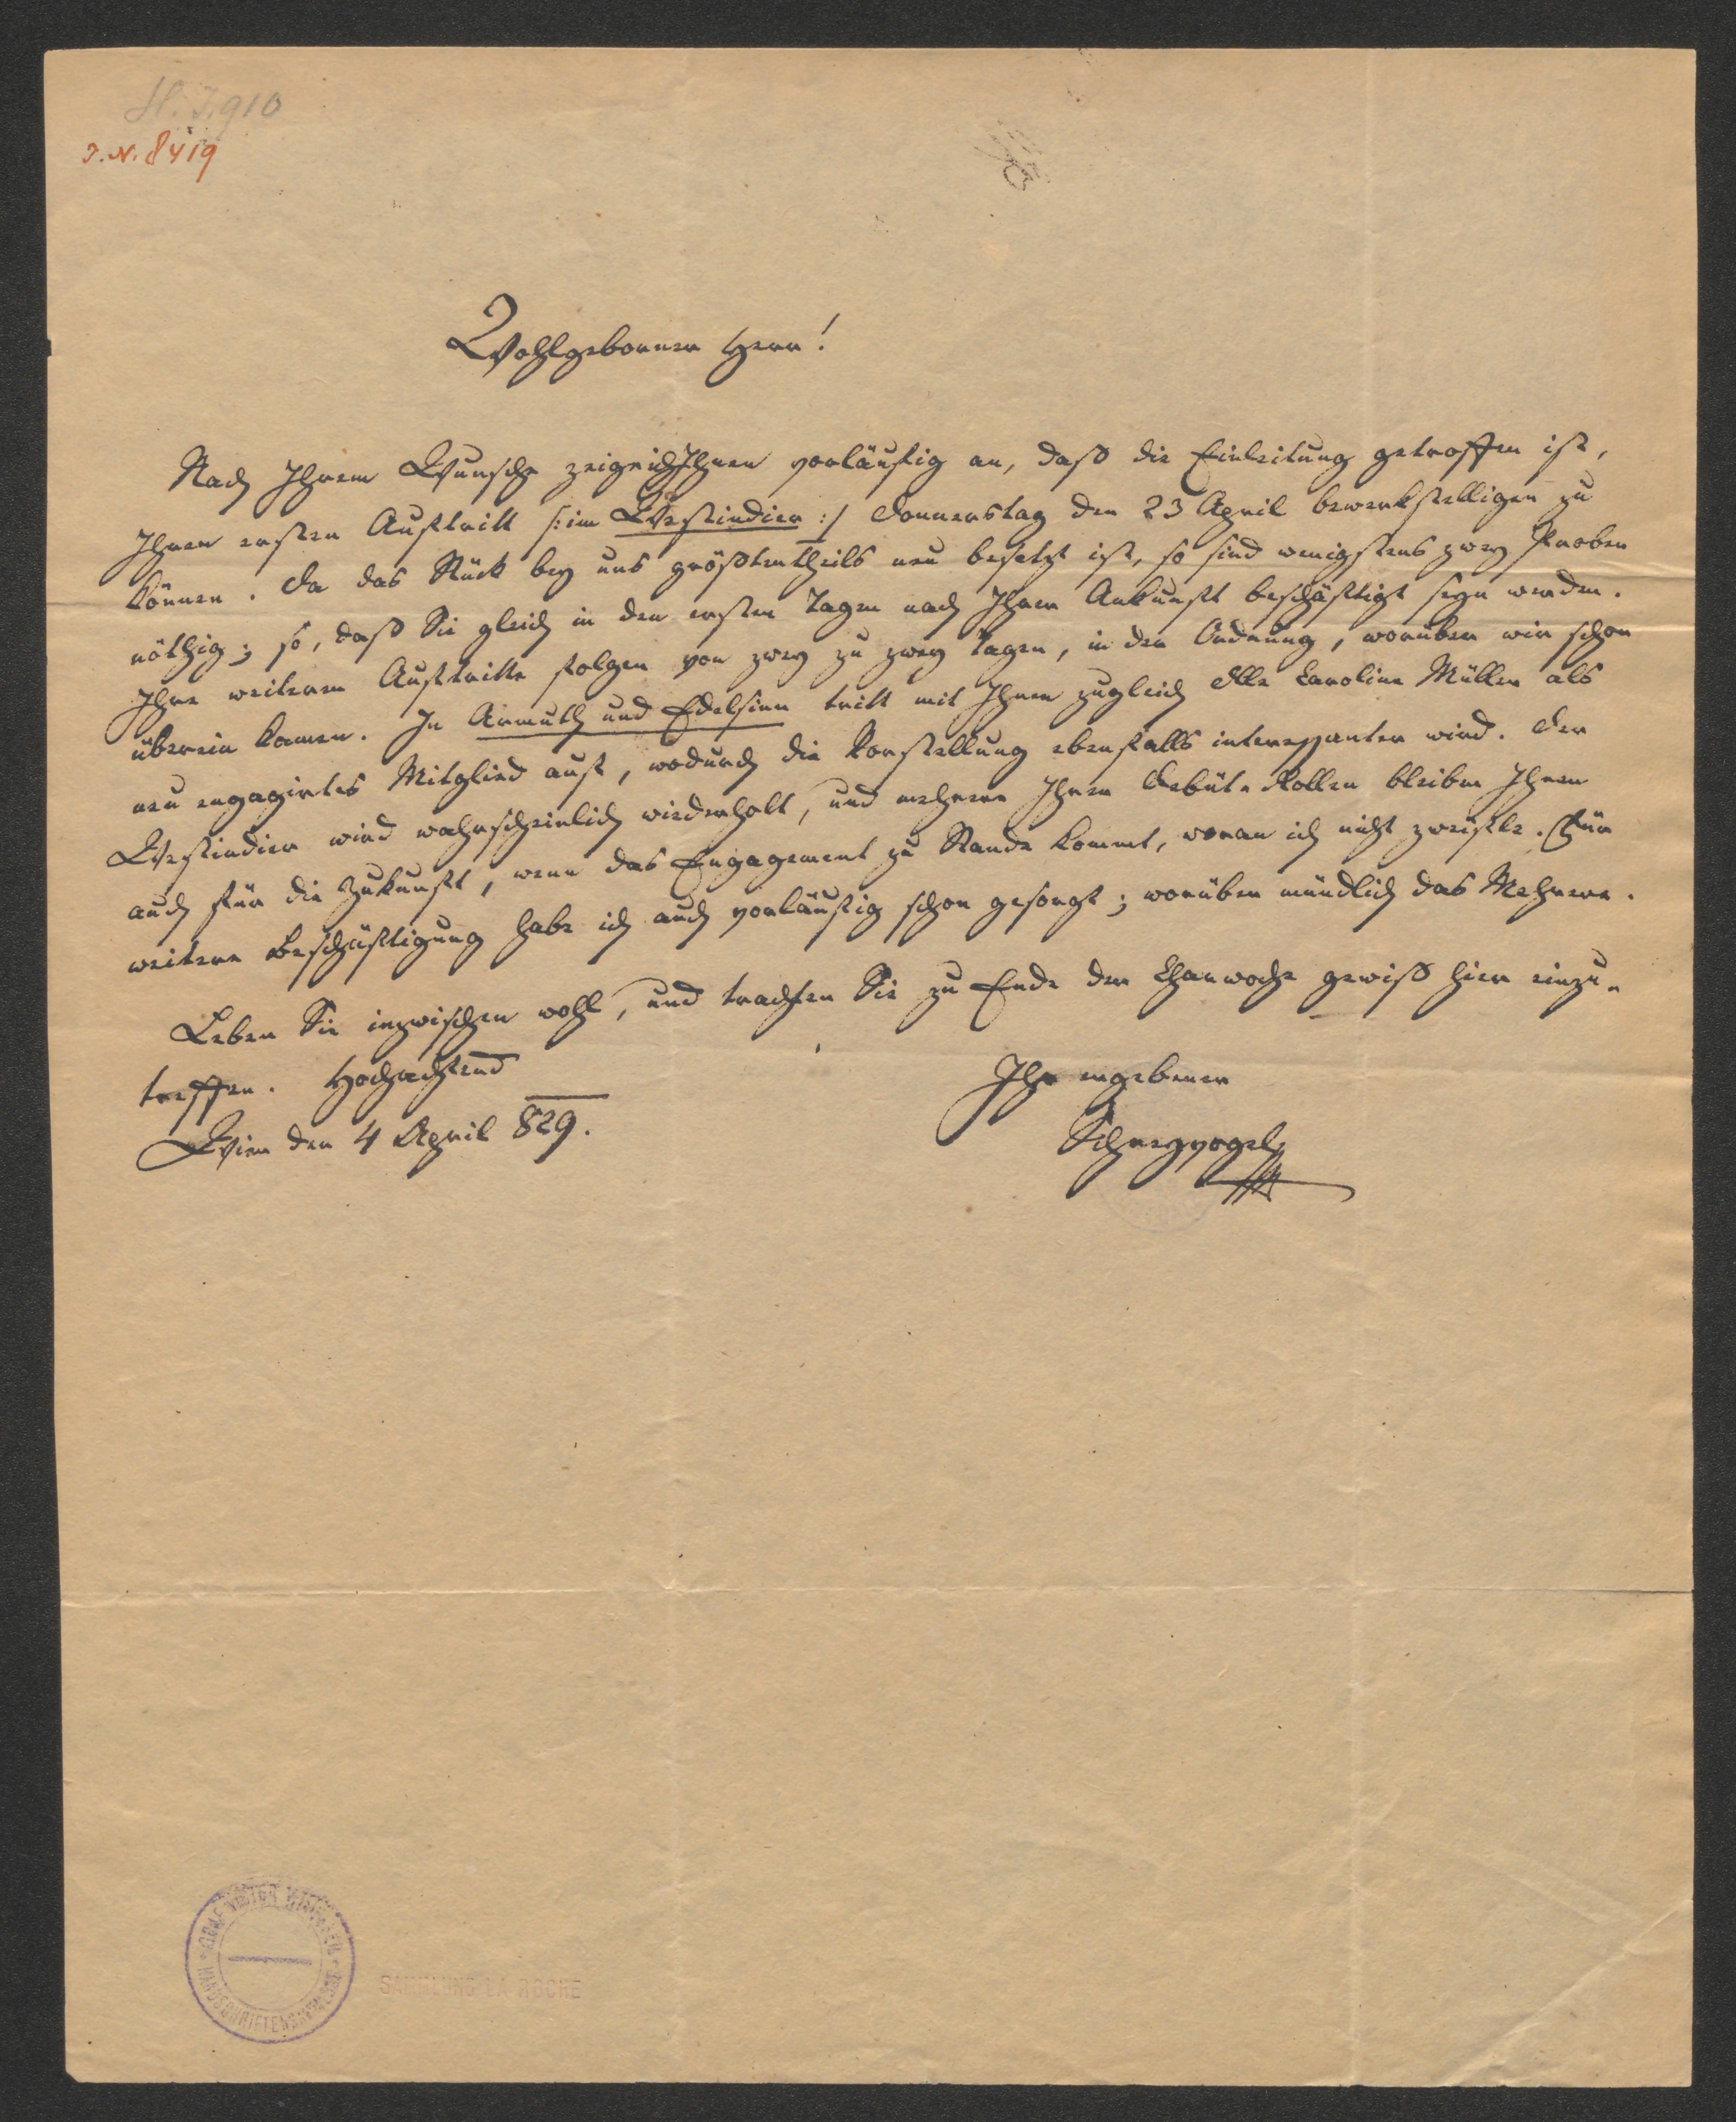 H.I.910
J.N. 8419
Wohlgeborner Herr!
Nach Ihrem Wunsche zeige ich Ihnen vorläufig an, daß die Einleitung getroffen ist,
Ihren ersten Auftritt /: im Westindier :/ Donnerstag den 23 April bewerkstelligen zu
können. Da das Stück bey uns größtentheils neu besetzt ist, so sind wenigstens zwey Proben
nöthig; so, daß Sie gleich in den ersten Tagen nach Ihrer Ankunft beschäftigt seyn werden.
Ihre weiteren Auftritte folgen von zwey zu zwey Tagen, in der Ordnung, worüber wir schon
überein kamen. In Armuth und Edelsinn tritt mit Ihnen zugleich Dlle Caroline Müller als
neu engagirtes Mitglied auf, wodurch die Vorstellung ebenfalls interessanter wird. Der
Westindier wird wahrscheinlich wiederholt, und mehrere Ihrer Debüt-Rollen bleiben Ihnen
auch für die Zukunft, wenn das Engagement zu Stande kommt, woran ich nicht zweifle. Für
weitere Beschäftigung habe ich auch vorläufig schon gesorgt; worüber mündlich das Mehrere.
Leben Sie inzwischen wohl, und trachten Sie zu Ende der Charwoche gewiß hier einzu-
treffen. Hochachtend
Ihr ergebener
Wien den 4 April 829.
Schreyvogel
HANDSCHRIFTENSAMMLUNG
SAMMLUNG LA ROCHE